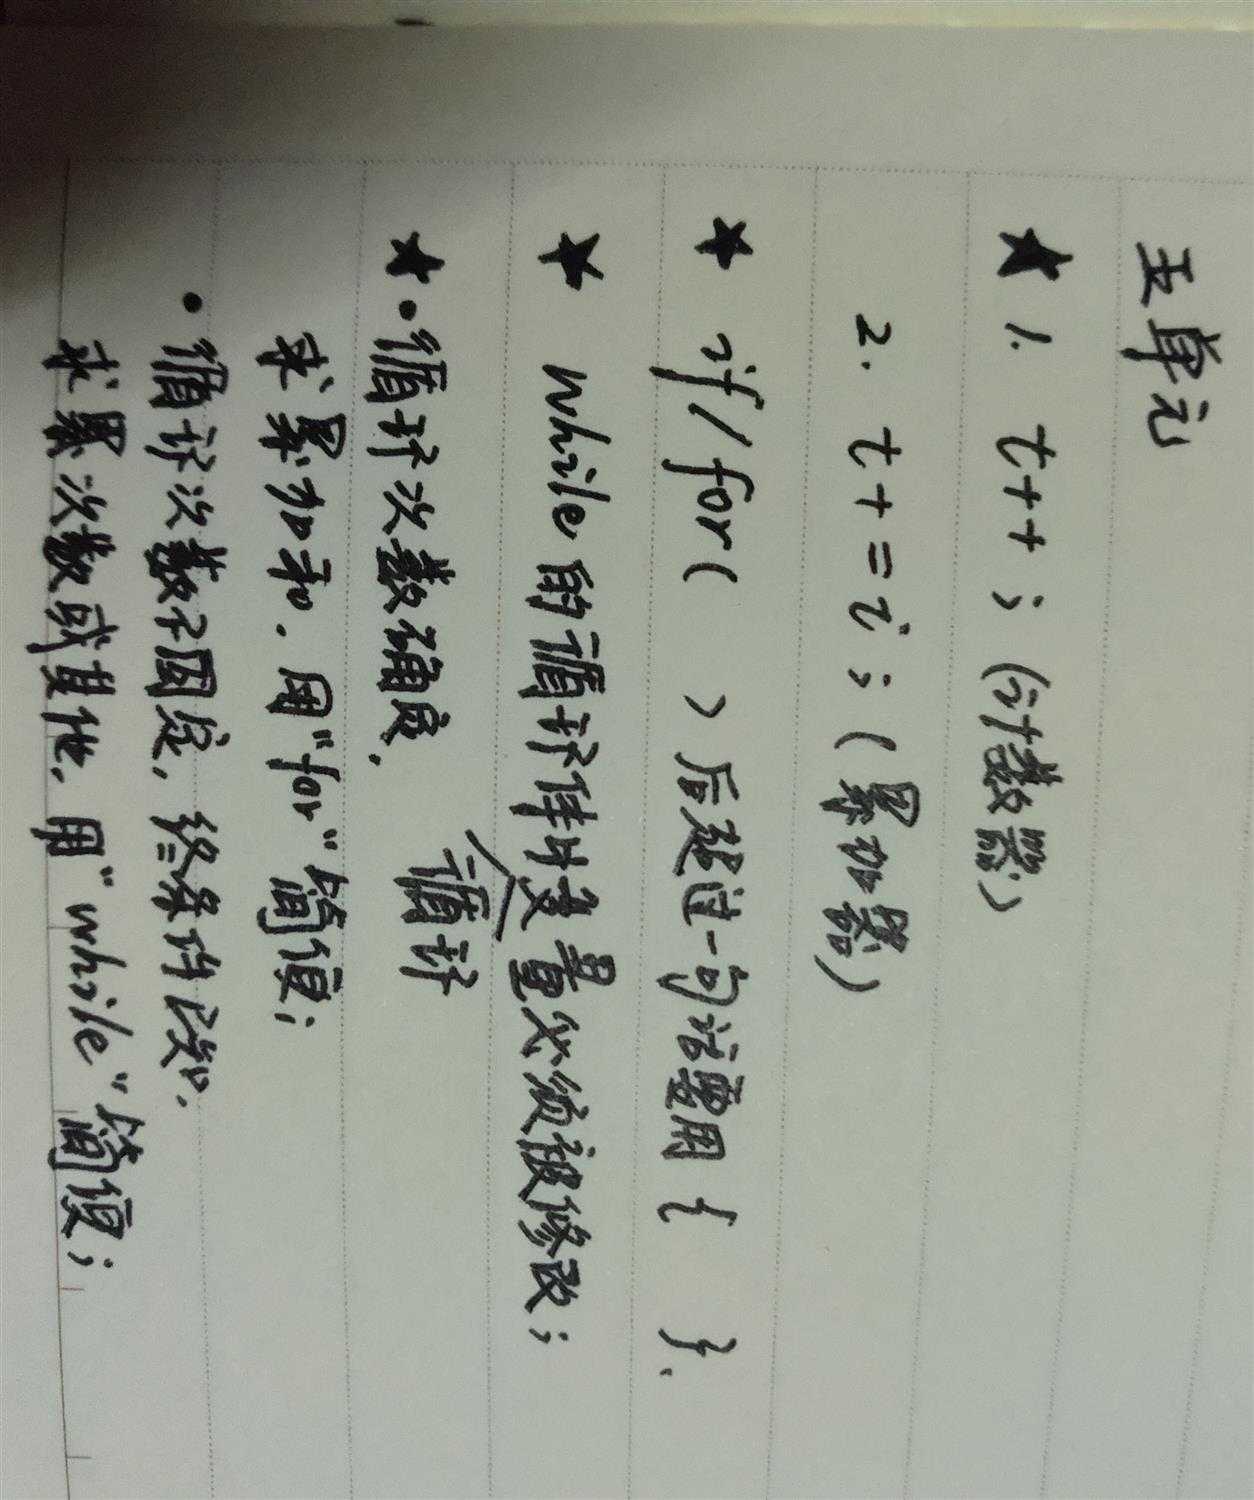 五单元
★ 1. t++；(计数器)
2. t+=i；(累加器)
★ if/for( )后超过一句话要用{ }.
★ while的循环体中变量必须被修改；
循环
★·循环次数确定,
求累加和.用"for"简便；
·循环次数不固定,终条件已知.
求累次数或其他.用"while"简便；